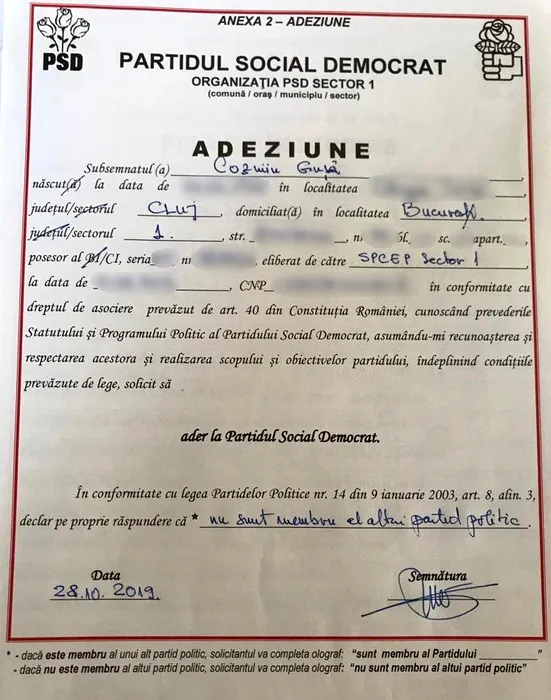 ANEXA 2 – ADEZIUNE
PSD
PARTIDUL SOCIAL DEMOCRAT
ORGANIZAȚIA PSD SECTOR 1
(comună / oraș / municipiu / sector)
ADEZIUNE
Subsemnatul(a) Cozmin Gușă
născut(ă) la data de în localitatea
județul/sectorul CLUJ, domiciliat(ă) în localitatea București,
județul/sectorul 1, str. nr. bl. sc. apart.
posesor al BI/CI, seria nr eliberat de către SPCEP Sector 1
la data de , CNP în conformitate cu
dreptul de asociere prevăzut de art. 40 din Constituția României, cunoscând prevederile
Statutului și Programului Politic al Partidului Social Democrat, asumându-mi recunoașterea și
respectarea acestora și realizarea scopului și obiectivelor partidului, îndeplinind condițiile
prevăzute de lege, solicit să
ader la Partidul Social Democrat.
În conformitate cu legea Partidelor Politice nr. 14 din 9 ianuarie 2003, art. 8, alin. 3,
declar pe proprie răspundere că * nu sunt membru al altui partid politic.
Data
Semnătura
28.10.2019.
* - dacă este membru al unui alt partid politic, solicitantul va completa olograf: "sunt membru al Partidului ________"
- dacă nu este membru al altui partid politic, solicitantul va completa olograf: "nu sunt membru al altui partid politic"